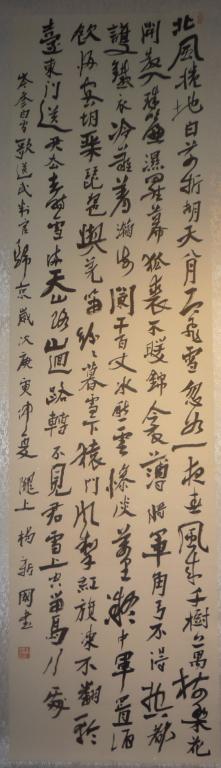 北風捲地白草折胡天八月即飛雪忽如一夜春風來千樹萬樹梨花
開散入珠簾濕羅幕狐裘不暖錦衾薄將軍角弓不得控都
護鐵衣冷難着瀚海闌干百丈冰愁雲慘淡萬里凝中軍置酒
飲歸客胡琴琵琶與羌笛紛〻暮雪下轅門風掣紅旗凍不翻輪
臺東門送君去去時雪滿天山路山迴路轉不見君雪上空留馬行處
岑參白雪歌送武判官歸京歲次庚寅仲夏隴上楊新國書